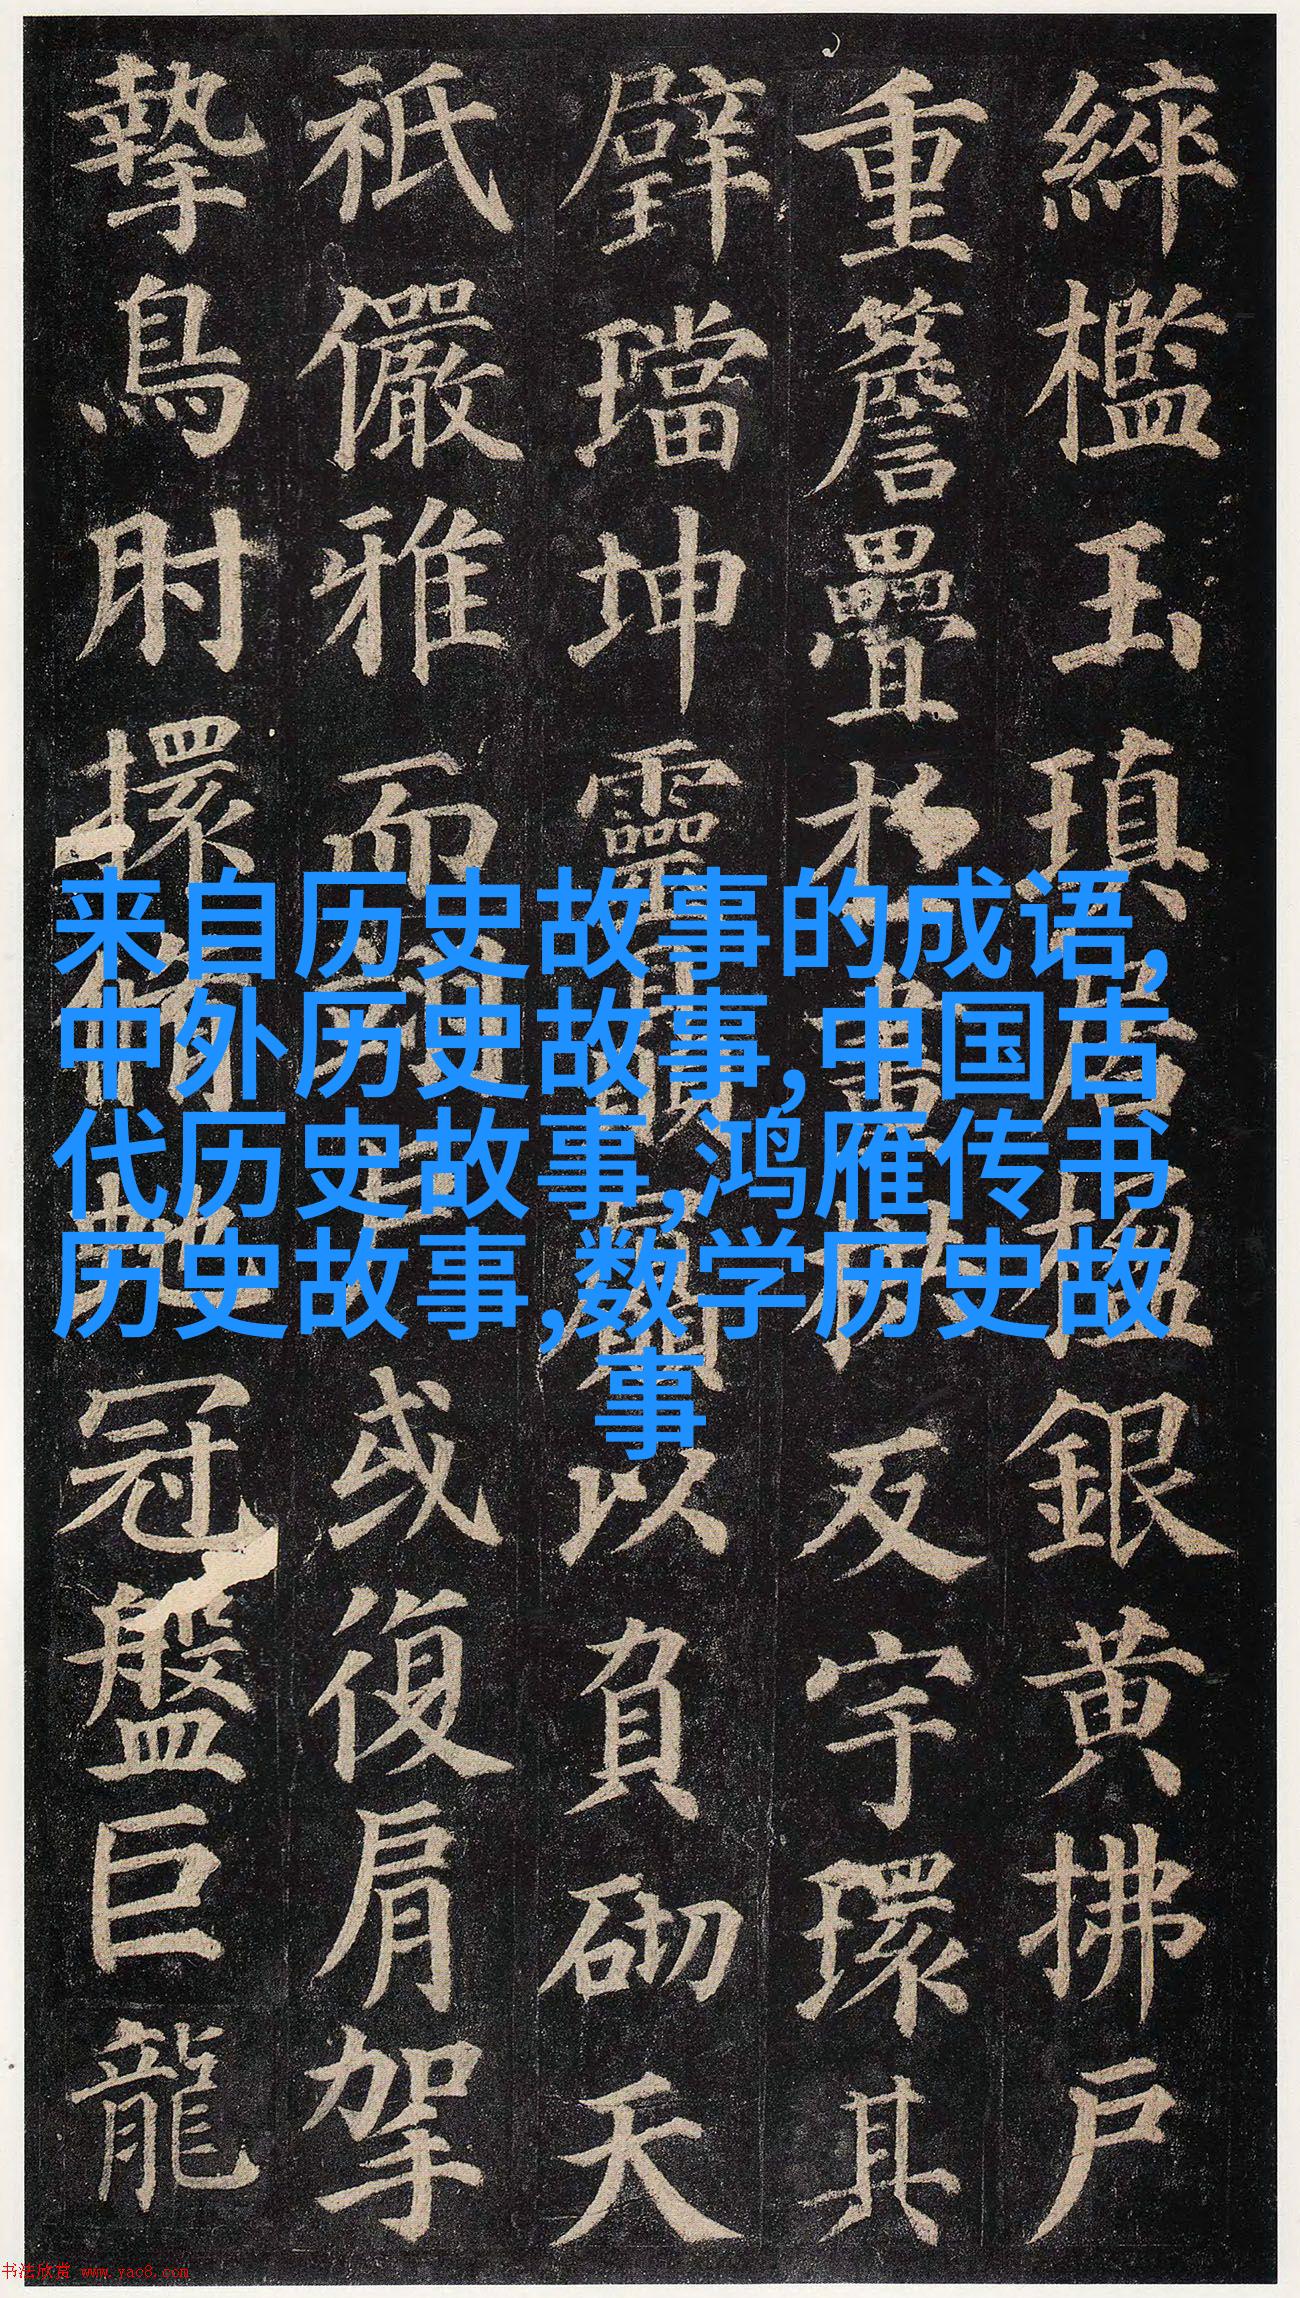 綷檻玉瑱居楹銀黄拂户
重簷疊於畫栱反宇環其
璧璫坤靈贔屓以負砌天
祇儼雅而翊户或復肩拏
摯鳥肘擐脩虵冠盤巨龍
来自历史故事的成语,
中外历史故事,中国古
代历史故事,鸿雁传书
历史故事,数学历史故
事
书法欣赏 www.yac8.com